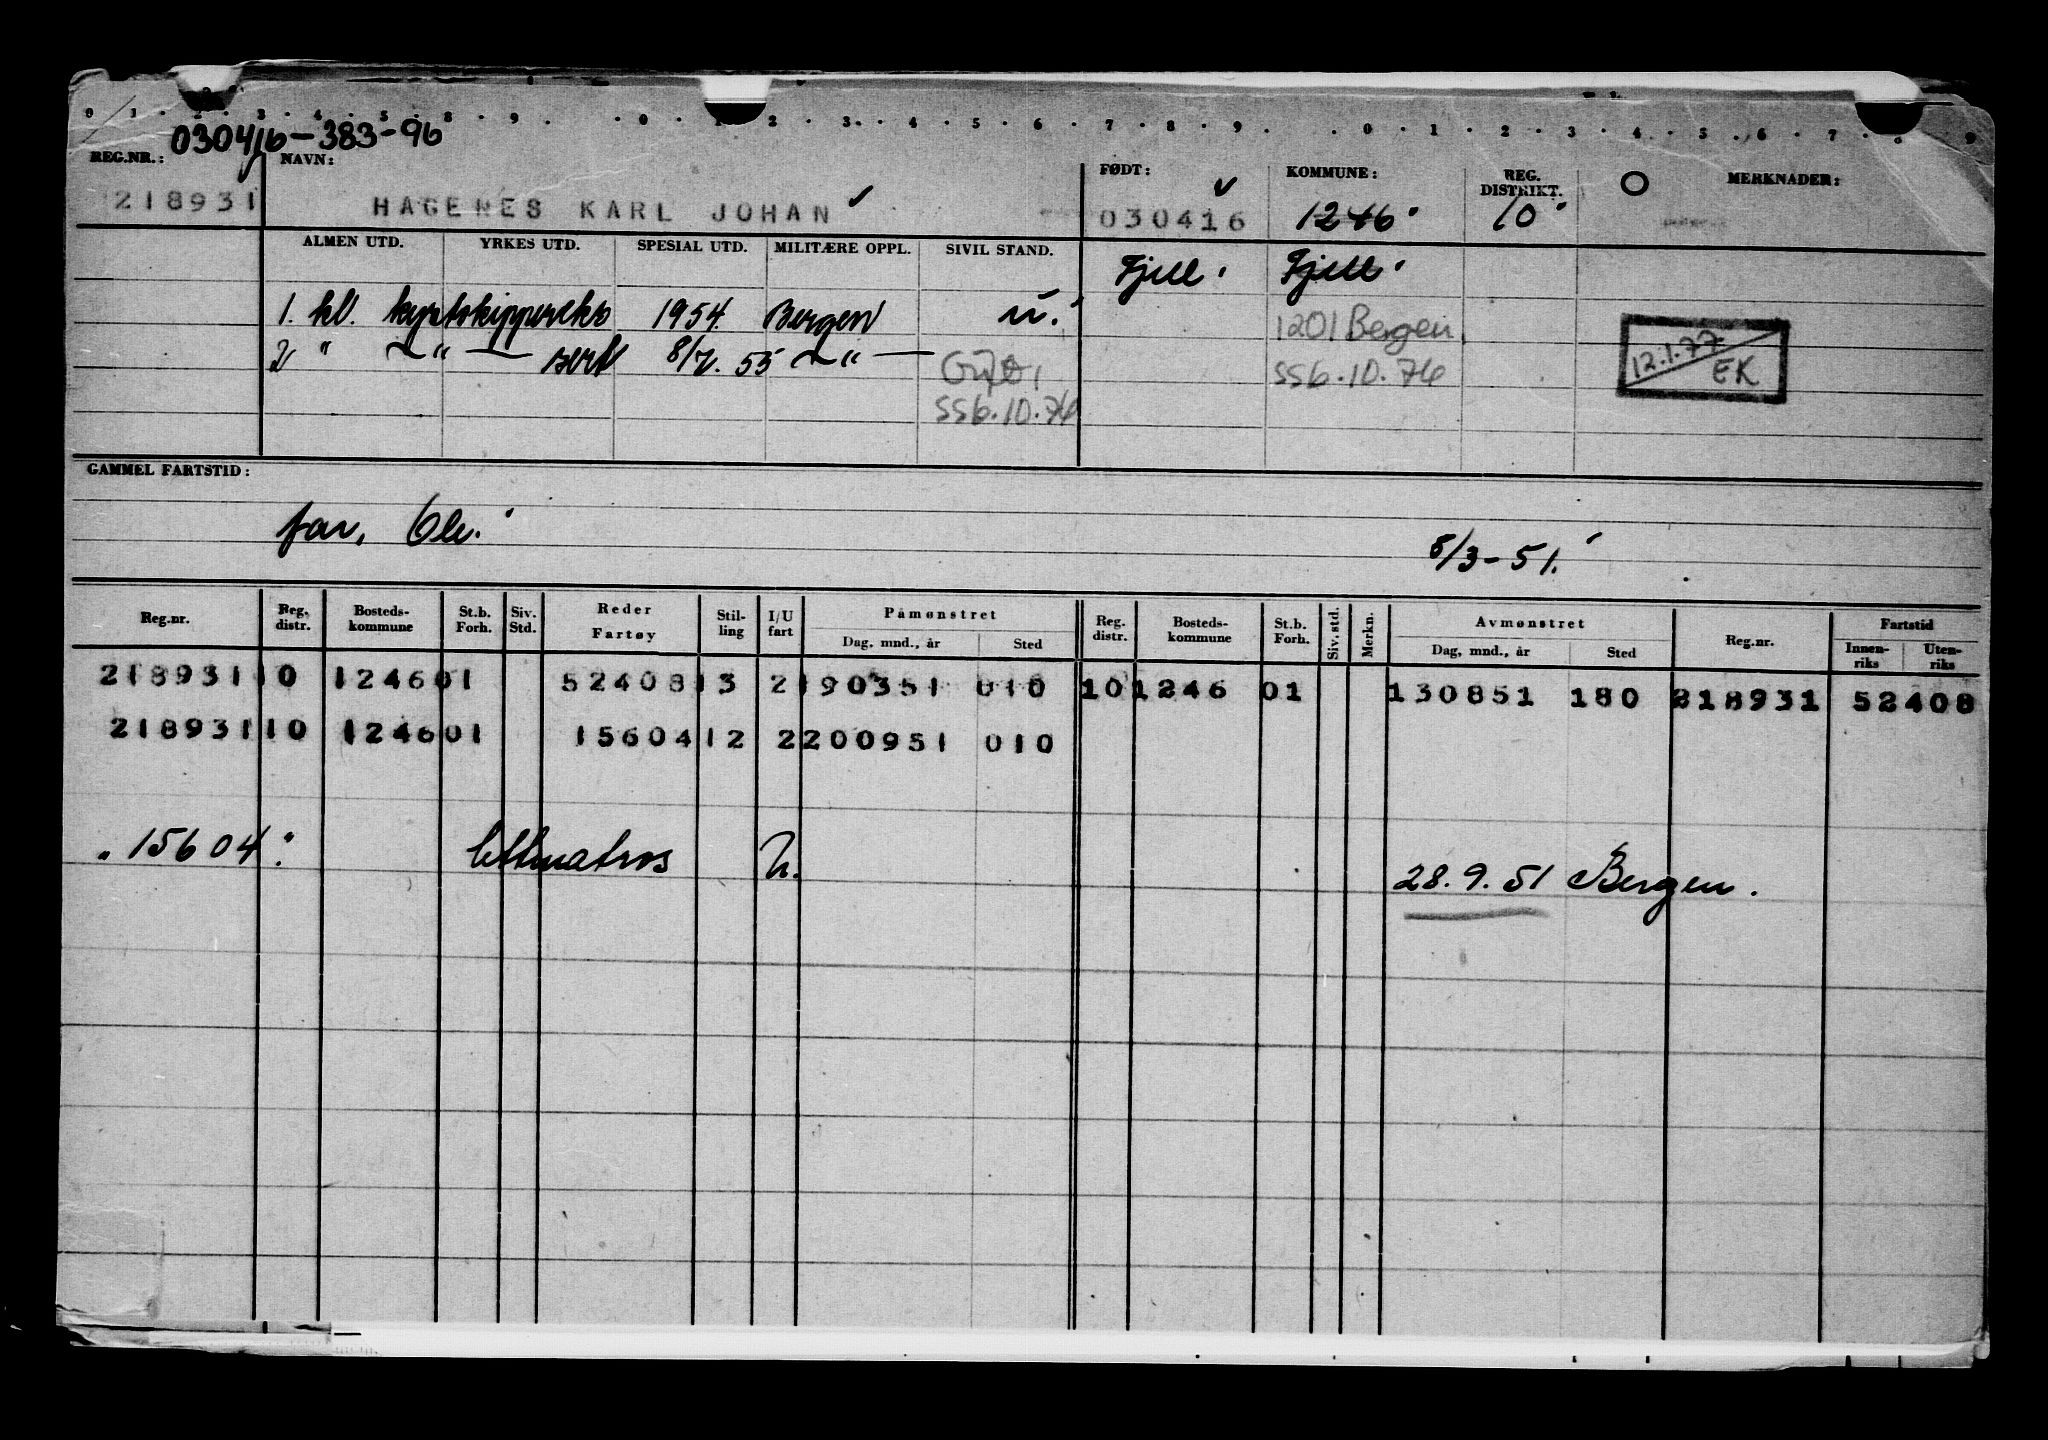 0 1 . 2 . 3 . 4 . 5 . 8 . 9 . . 0 . 1 . 2 . 3 . 4 . 5 . 6 . 7 . 8 . 9 . . 0 . 1 . 2 . 3 . 4 . 5 . 6 . 7 . 8 . 9
030416-383-96
REG.NR.: NAVN: FØDT: KOMMUNE: REG. DISTRIKT. O MERKNADER:
218931 HAGENES KARL JOHAN 030416 1246 10
ALMEN UTD. YRKES UTD. SPESIAL UTD. MILITÆRE OPPL. SIVIL STAND. Fjell Fjell
1. kl. kystskippereks 1954. Bergen u. 1201 Bergen
" —"— sert 8/2. 55 —"— Gift, SS6.10.76 12.1.77 EK
SS6.10.76
GAMMEL FARTSTID:
far, Ole. 8/3-51.
Reg.nr. Reg. distr. Bosteds- kommune St.b. Forh. Siv. Std. Reder Fartøy Stil- ling I/U fart Påmønstret Dag, mnd., år Sted Reg. distr. Bosteds- kommune St.b. Forh. Siv. std. Merkn. Avmønstret Dag, mnd., år Sted Reg.nr. Fartstid Innen- riks Uten- riks
218931 10 1246 01 52408 13 2 190351 010 10 1246 01 130851 180 218931 52408
218931 10 1246 01 15604 12 2 200951 010
"15604" lettmatros U. 28.9.51 Bergen.